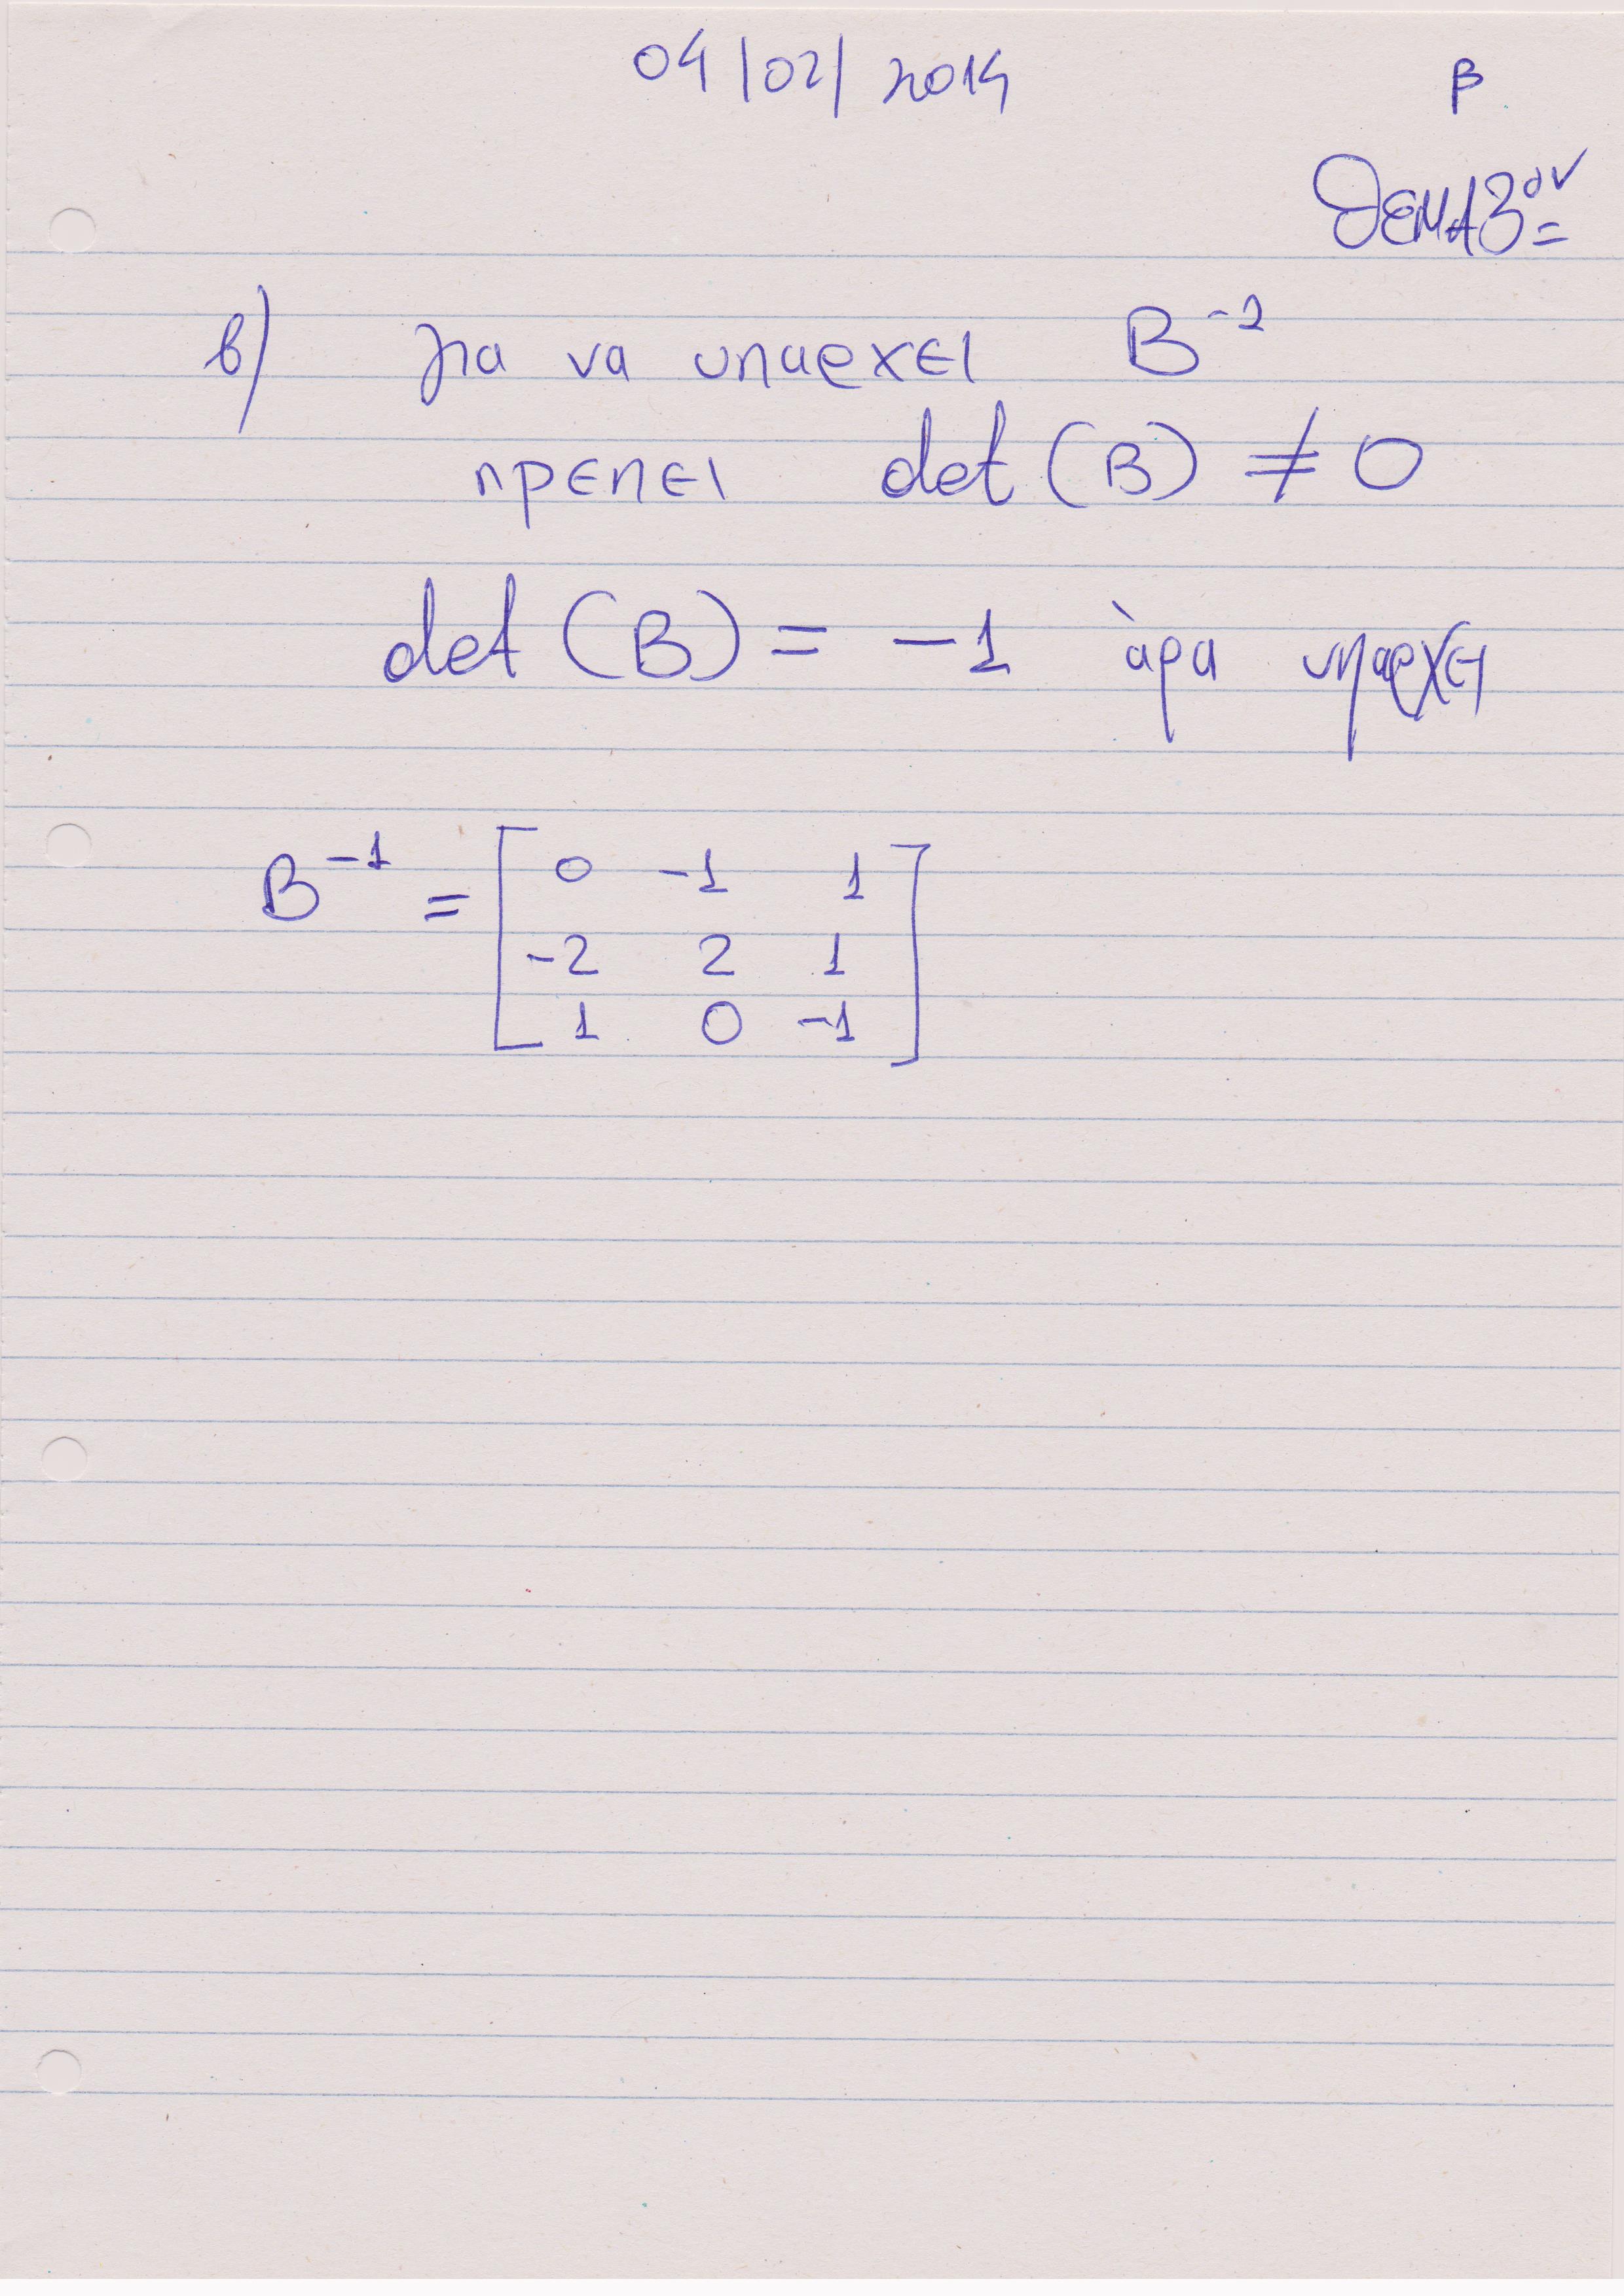 04/02/2014
β
ΘΕΜΑ 3ον
β) για να υπαρχει B^-1
πρεπει det (B) ≠ 0
det (B) = -1 άρα υπαρχει
B^-1 = [ 0 -1 1
-2 2 1
1 0 -1 ]